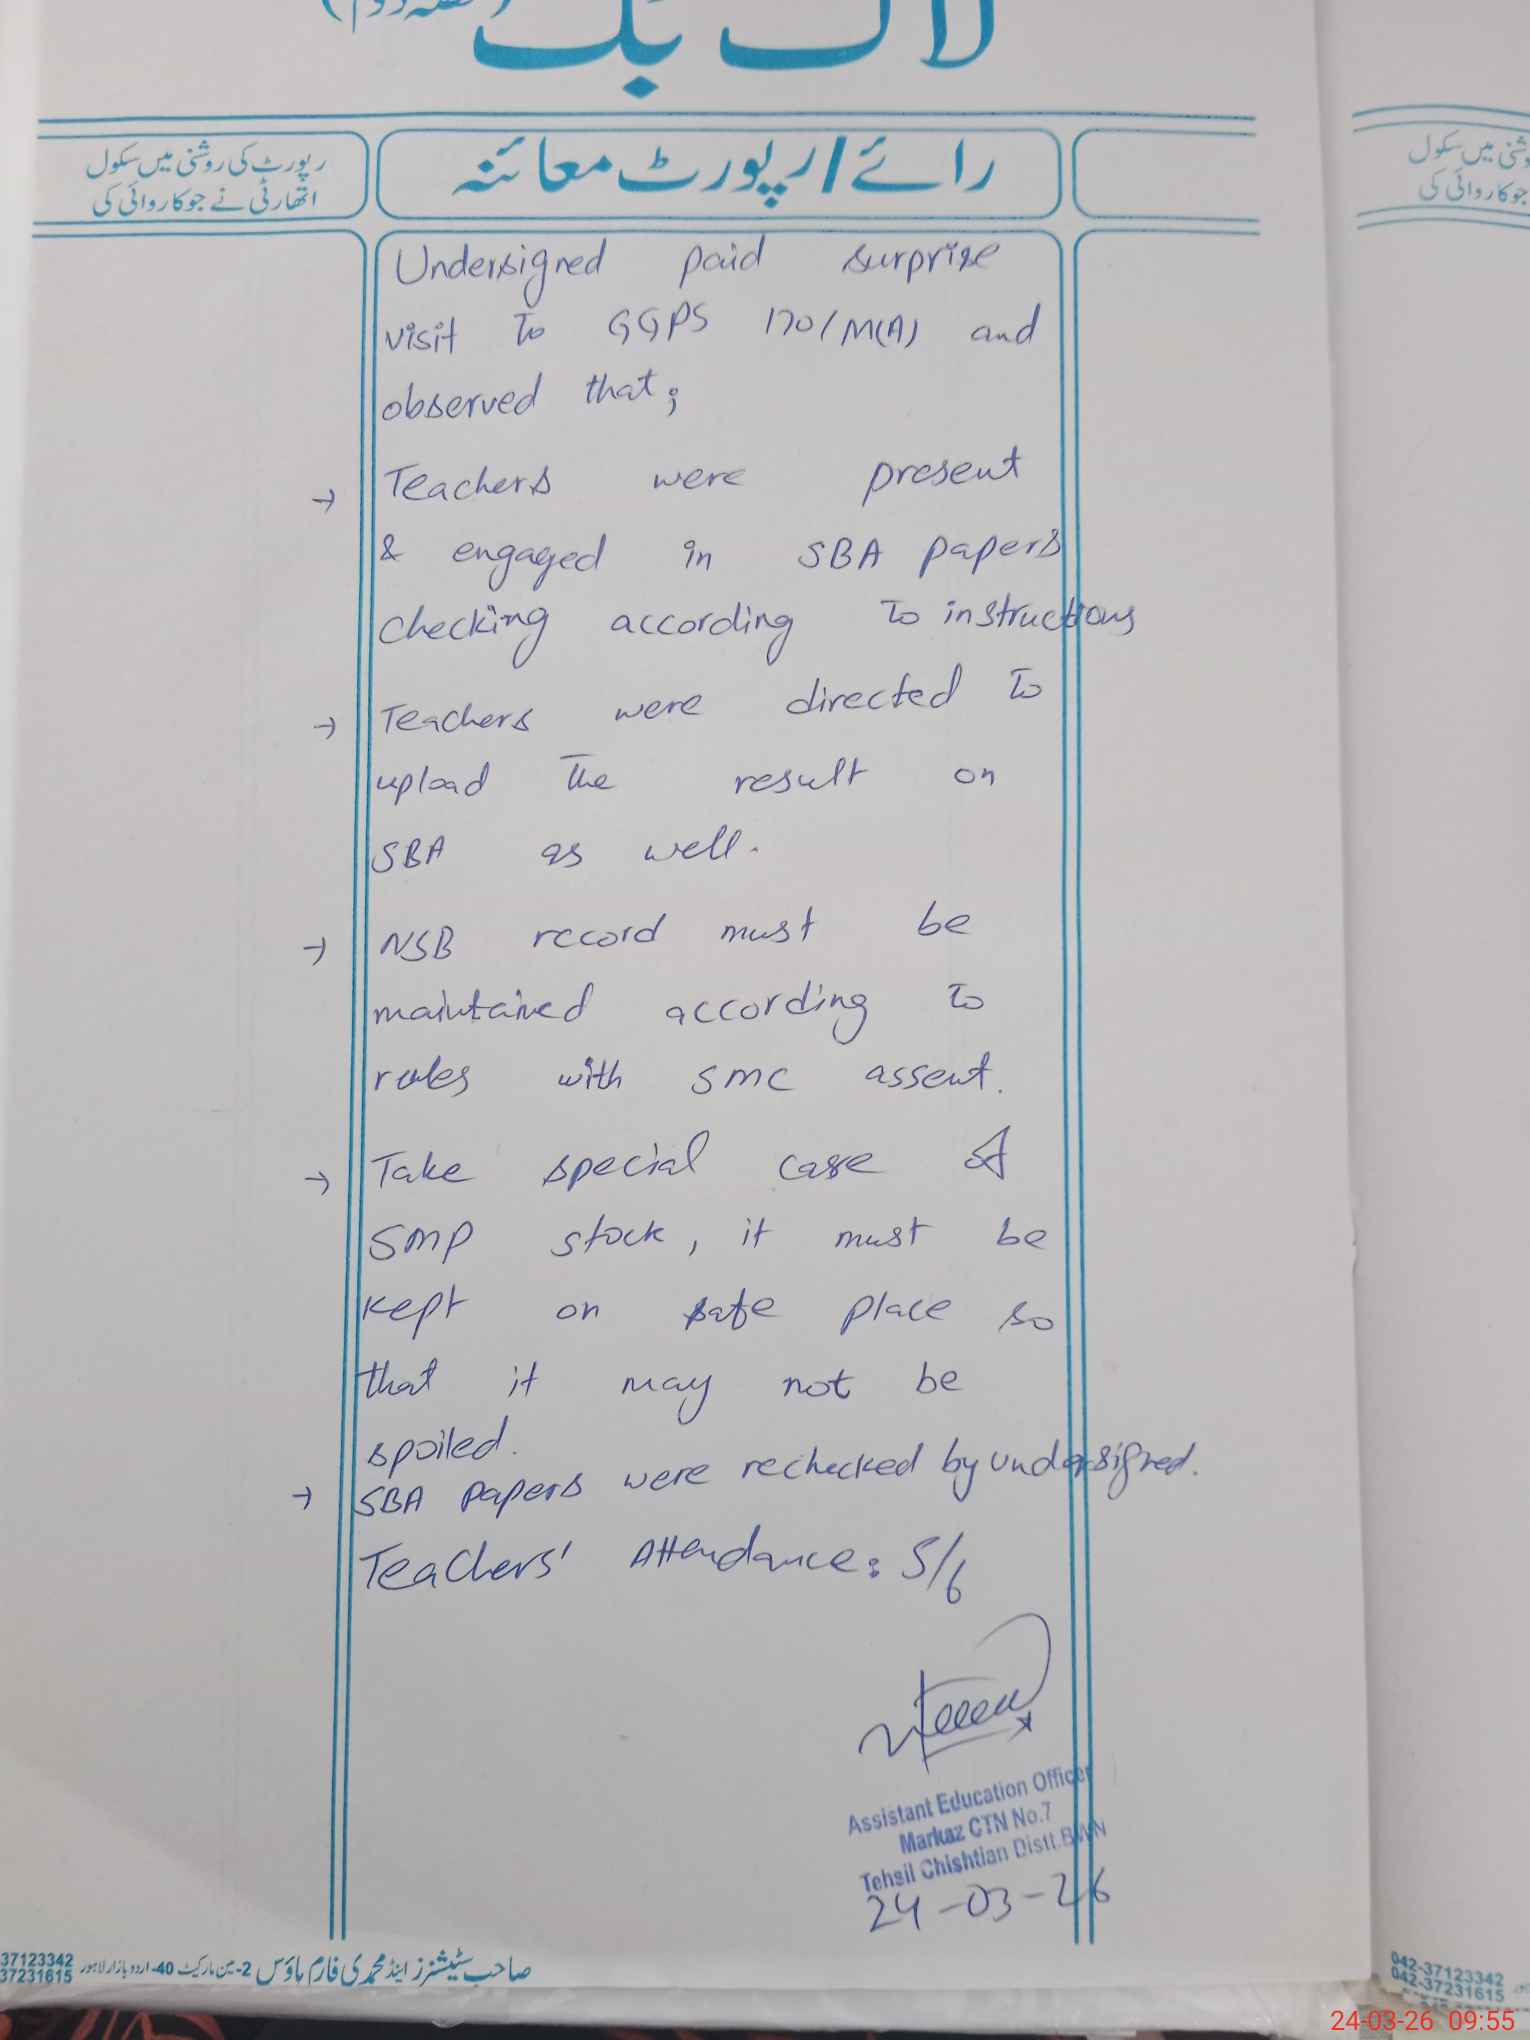 لاگ بک
رپورٹ کی روشنی میں سکول
اتھارٹی نے جو کاروائی کی
رائے/رپورٹ معائنہ
Undersigned paid surprise
visit To GGPS 170/M(A) and
observed that;
→ Teachers were present
& engaged in SBA papers
checking according To instructions
→ Teachers were directed To
upload The result on
SBA as well.
→ NSB record must be
maintained according To
rules with SMC assent.
→ Take special case of
SMP stock, it must be
kept on safe place so
that it may not be
spoiled.
→ SBA papers were rechecked by undersigned.
Teachers' Attendance: 5/6
Assistant Education Officer
Markaz CTN No.7
Tehsil Chishtian Distt.BWN
24-03-26
صاحب سٹیشنرز اینڈ محمدی فارم ہاؤس 2-مین مارکیٹ 40-اردو بازار لاہور
37123342
37231615
042-37123342
042-37231615
24-03-26 09:55